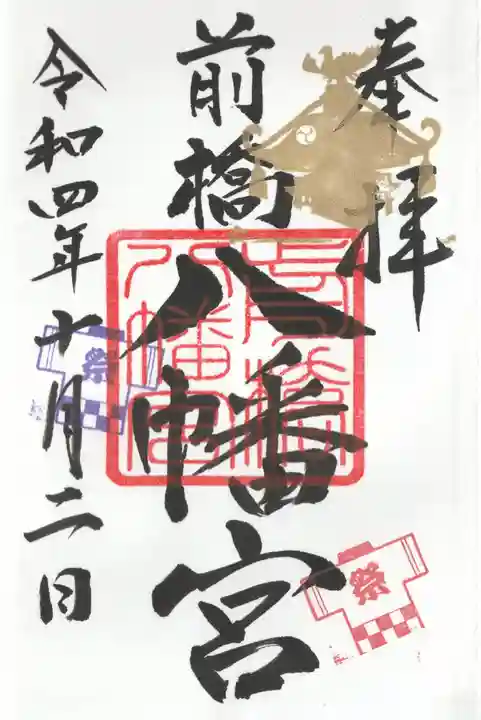 奉拝
前橋
八幡宮
令和四年十月二日
前橋
八幡宮
祭
祭